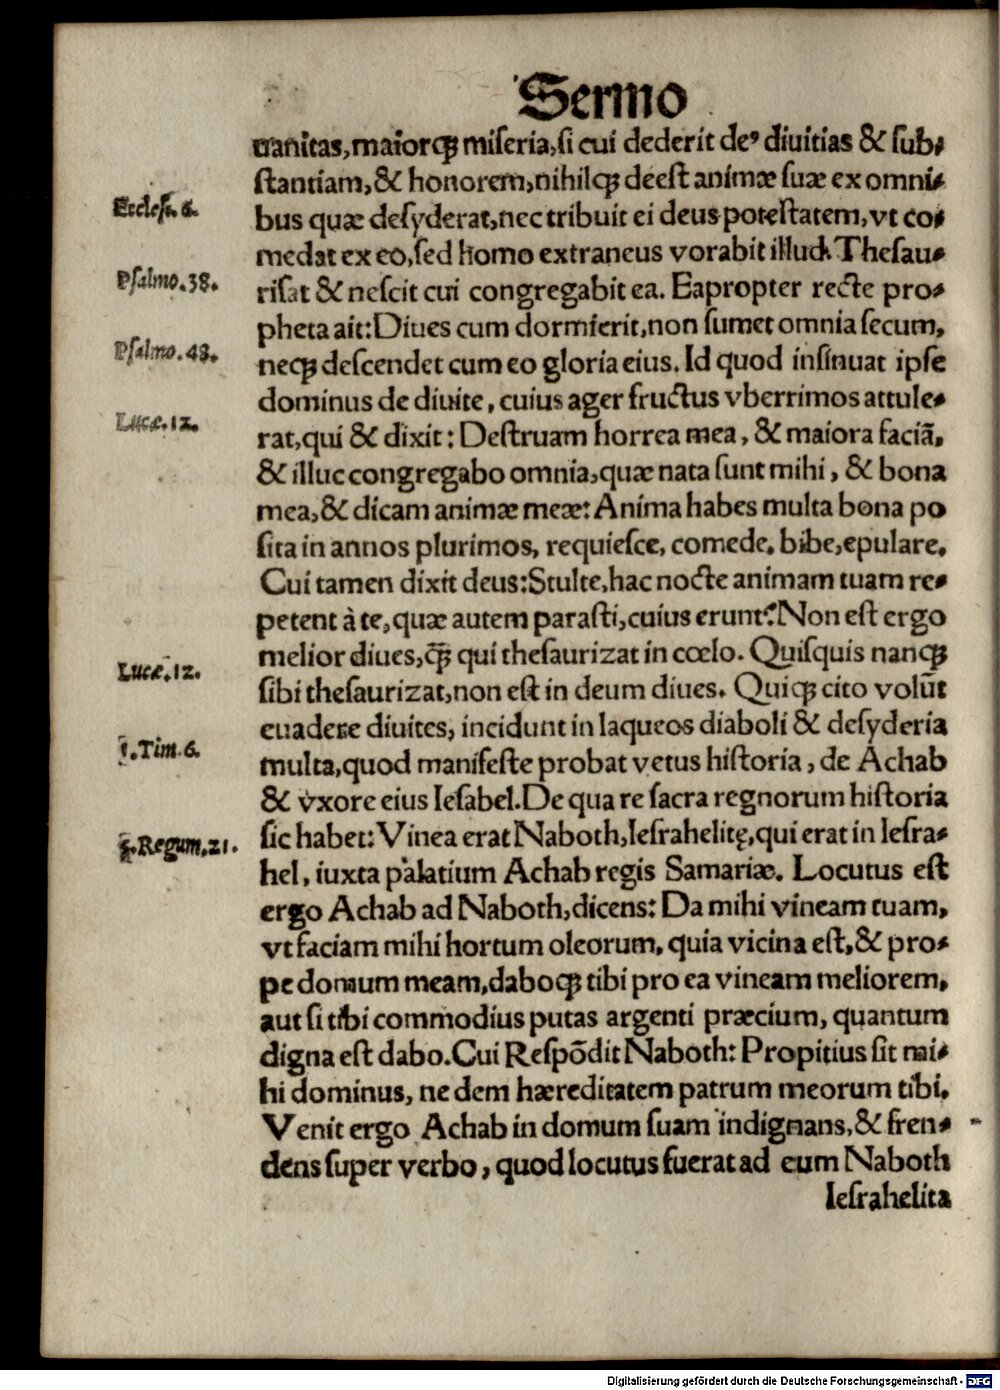 Sermo
uanitas, maiorqꝫ miseria, si cui dederit deꝰ diuitias & sub⸗
stantiam, & honorem, nihilqꝫ deest animæ suæ ex omni⸗
Ecclesi. 6.
bus quæ desyderat, nec tribuit ei deus potestatem, vt co⸗
medat ex eo, sed homo extraneus vorabit illud. Thesau⸗
Psalmo. 38.
risat & nescit cui congregabit ea. Eapropter recte pro⸗
pheta ait: Diues cum dormierit, non sumet omnia secum,
Psalmo. 48.
neqꝫ descendet cum eo gloria eius. Id quod insinuat ipse
dominus de diuite, cuius ager fructus vberrimos attule⸗
Luce. 12.
rat, qui & dixit: Destruam horrea mea, & maiora faciã,
& illuc congregabo omnia, quæ nata sunt mihi, & bona
mea, & dicam animæ meæ: Anima habes multa bona po
sita in annos plurimos, requiesce, comede, bibe, epulare.
Cui tamen dixit deus: Stulte, hac nocte animam tuam re⸗
petent à te, quæ autem parasti, cuius erunt? Non est ergo
melior diues, q̃ꝫ qui thesaurizat in cœlo. Quisquis nanqꝫ
Luce. 12.
sibi thesaurizat, non est in deum diues. Quiqꝫ cito volũt
euadere diuites, incidunt in laqueos diaboli & desyderia
1. Tim. 6.
multa, quod manifeste probat vetus historia, de Achab
& vxore eius Iesabel. De qua re sacra regnorum historia
3. Regum. 21.
sic habet: Vinea erat Naboth, Iesrahelitę, qui erat in Iesra⸗
hel, iuxta palatium Achab regis Samariæ. Locutus est
ergo Achab ad Naboth, dicens: Da mihi vineam tuam,
vt faciam mihi hortum oleorum, quia vicina est, & pro⸗
pe domum meam, daboqꝫ tibi pro ea vineam meliorem,
aut si tibi commodius putas argenti præcium, quantum
digna est dabo. Cui Respõdit Naboth: Propitius sit mi⸗
hi dominus, ne dem hæreditatem patrum meorum tibi.
Venit ergo Achab in domum suam indignans, & fren⸗
dens super verbo, quod locutus fuerat ad eum Naboth
Iesrahelita
Digitalisierung gefördert durch die Deutsche Forschungsgemeinschaft - DFG